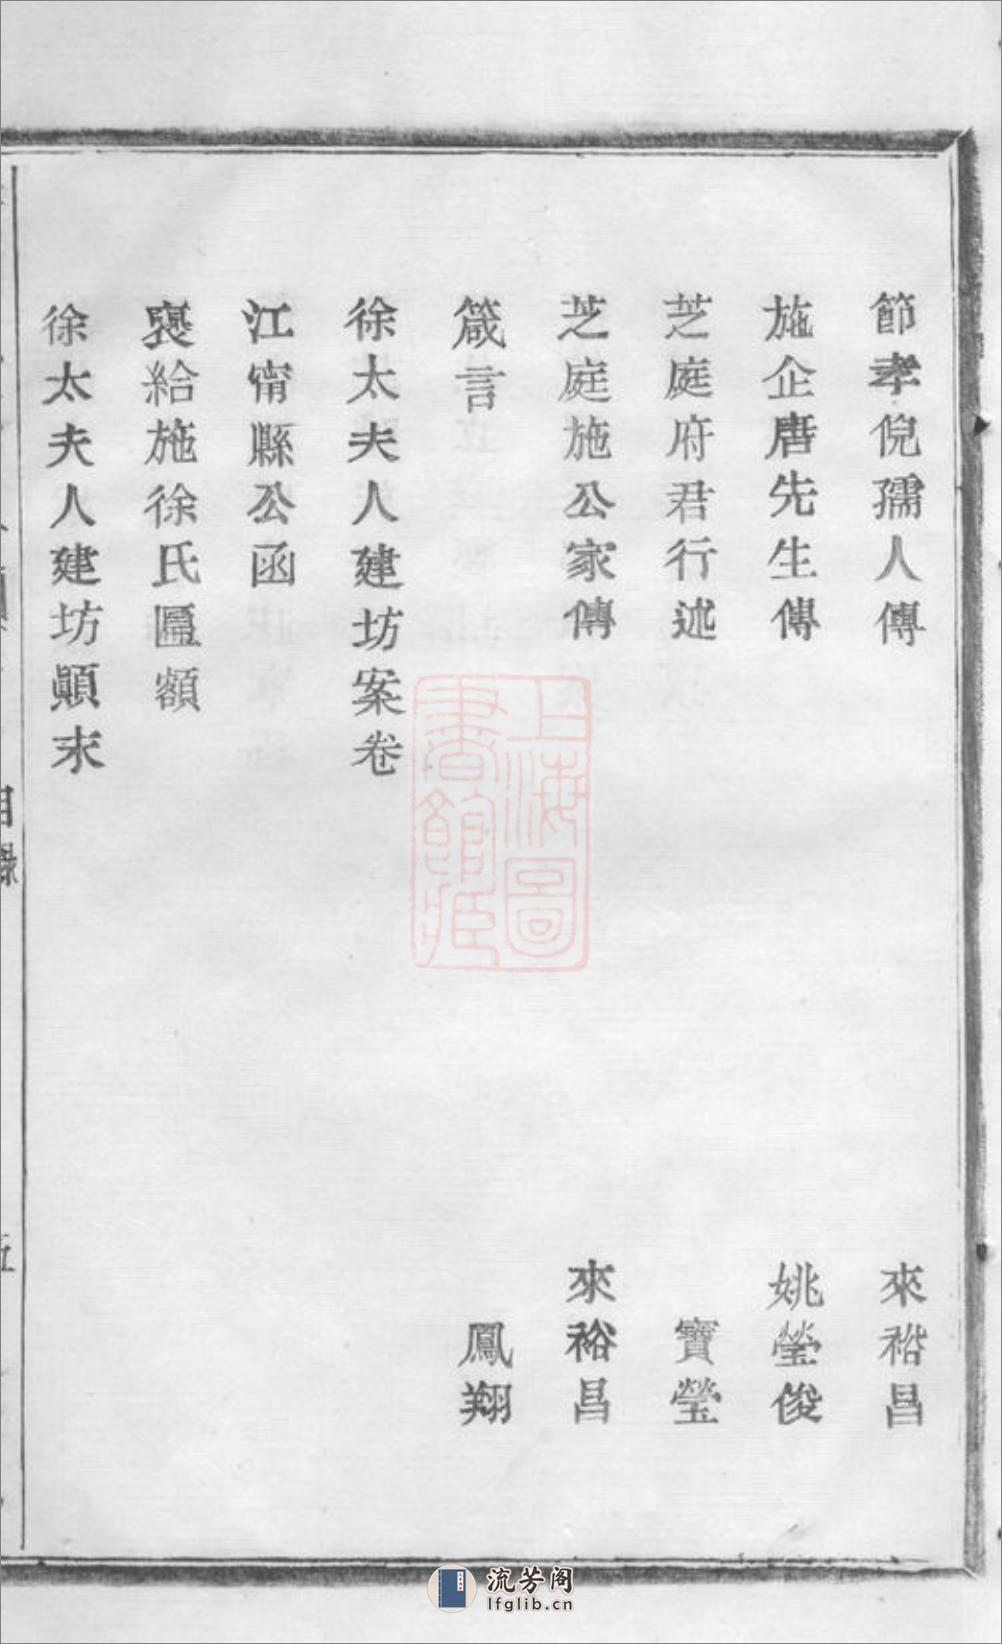 節孝倪孺人傳 來裕昌
施企唐先生傳 姚瑩俊
芝庭府君行述 寶瑩
芝庭施公家傳 來裕昌
箴言 鳳翔
徐太夫人建坊案卷
江甯縣公函
褒給施徐氏匾額
徐太夫人建坊顚末
目錄
五
上海圖
書館藏
流芳阁
lfglib.cn